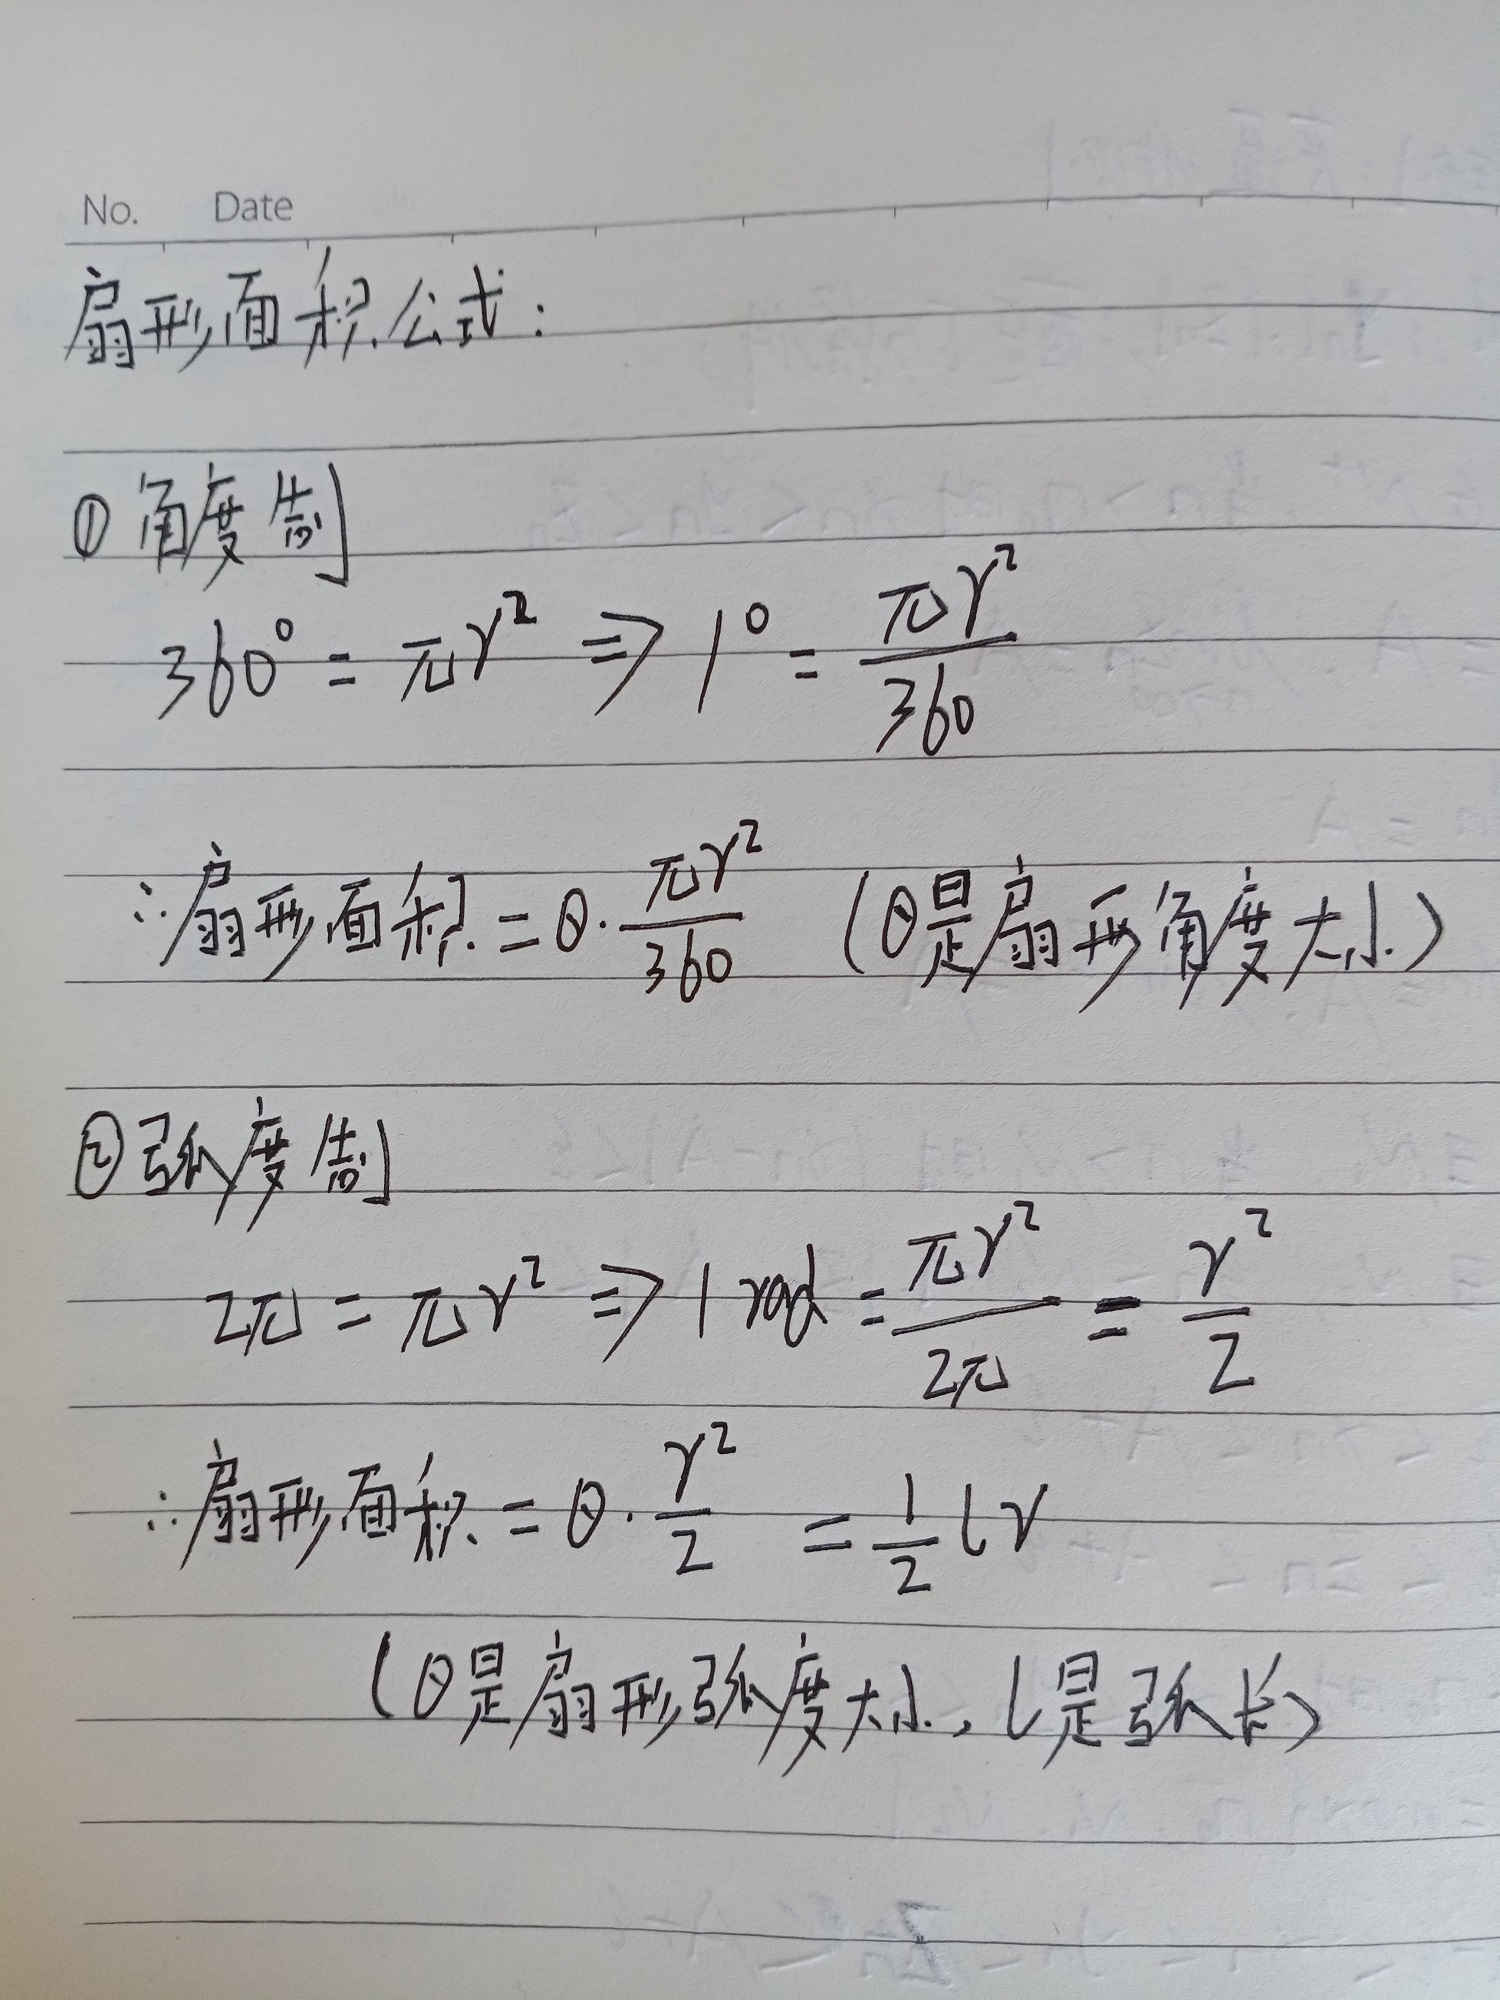 No. Date
扇形面积公式:
① 角度制
360° = πr² ⇒ 1° = πr²/360
∴扇形面积 = θ·πr²/360 (θ是扇形角度大小)
② 弧度制
2π = πr² ⇒ 1 rad = πr²/2π = r²/2
∴扇形面积 = θ·r²/2 = 1/2 lr
(θ是扇形弧度大小, l是弧长)